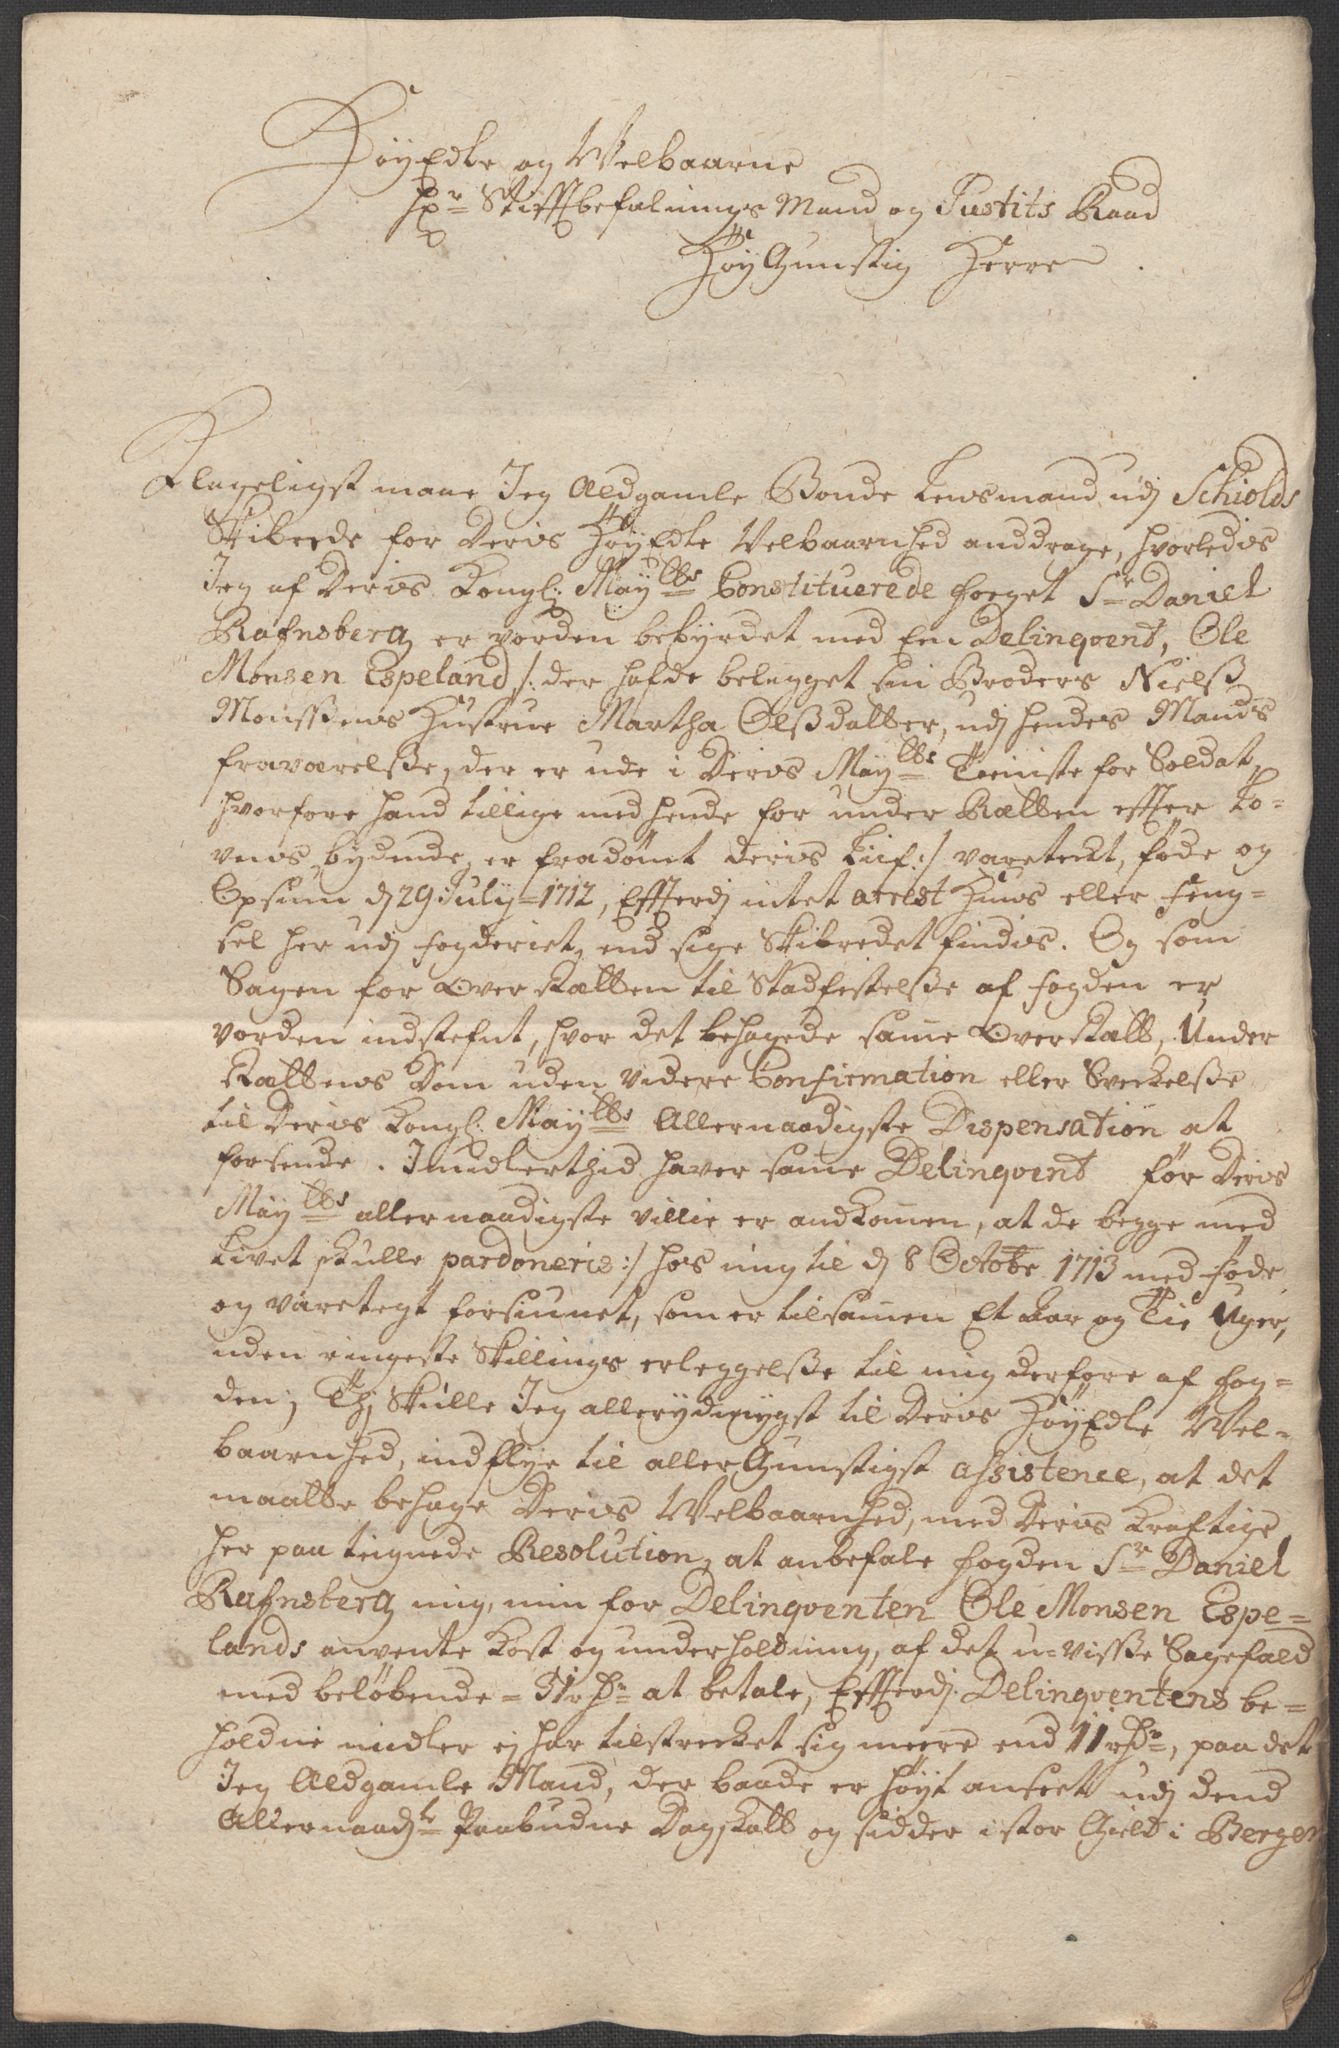 HöyEdle og Velbaarne
Hr Stifftbefalings Mand og Justits Raad
HöyGunstig Herre
Klageligst maae Jeg Aldgamle Bonde Lensmand udj Schiolds
Skibrede for Deris HöyEdle Velbaarnhed anddrage, hvorledis
Jeg af Deris Kongl: Mayttes Constituerede foeget Sr Daniel
Rafnsberg er vorden bebyrdet med Een Delinqvent, Ole
Monsen Espeland /: der hafde belegget sin Broders Nielß
Monssens Hustrue Martha Olßdatter, udj hendes Mands
fraværelsße, der er ude i Deris Maytts Tieniste for Soldat,
hvorfore hand tillige med hende for under Rætten effter Lo-
vens bydende er fradömt deris Liif :/ varetekt, föde og
Opsiun d 29 July 1712, Effterdj intet arrest Huus eller Feng-
sel her udj fogderiet, end sige Skibredet findis. Og som
Sagen for Over Rætten til Stadfestelsße af fogden er
vorden indstefnt, hvor det behagede same OverRætt, Under
Rættens Dom uden videre Confirmation eller Svechelsße
til Deris Kongl: Maytts Allernaadigste Dispensation at
forsende. Imidlertiid haver same Delinqvent för Deris
Maytts allernaadigste villie er andkomen, at de begge med
Livet skulle pardoneris :/ hos mig til d 8 Octobr 1713 med föde
og varetegt forsiunet, som er tilsamen Et Aar og Tie Uger,
uden ringeste Skillings erleggelsße til mig derfore af fog-
den; Thj Skulle Jeg allerydmygst til Deris HöyEdle Vel-
baarnhed, indflye til allerGunstigst assistence, at det
maatte behage Deris Velbaarnhed, med Deris Kraftige
her paa teignede Resolution, at anbefale fogden Sr Daniel
Rafnsberg mig, min for Delinqventen Ole Monsen Espe-
lands anvente Kost og underholdning, af det u-visße Sagefald
med belöbende - 31 rdr at betale, Effterdj Delinqventens be-
holdne midler ej har tilstrecket sig meere end 11 rdr, paa det
Jeg Aldgamle Mand, der baade er höyt anseet udj dend
Allernaadgte Paabudne Dagskatt og sidder i stor Gield i Bergen